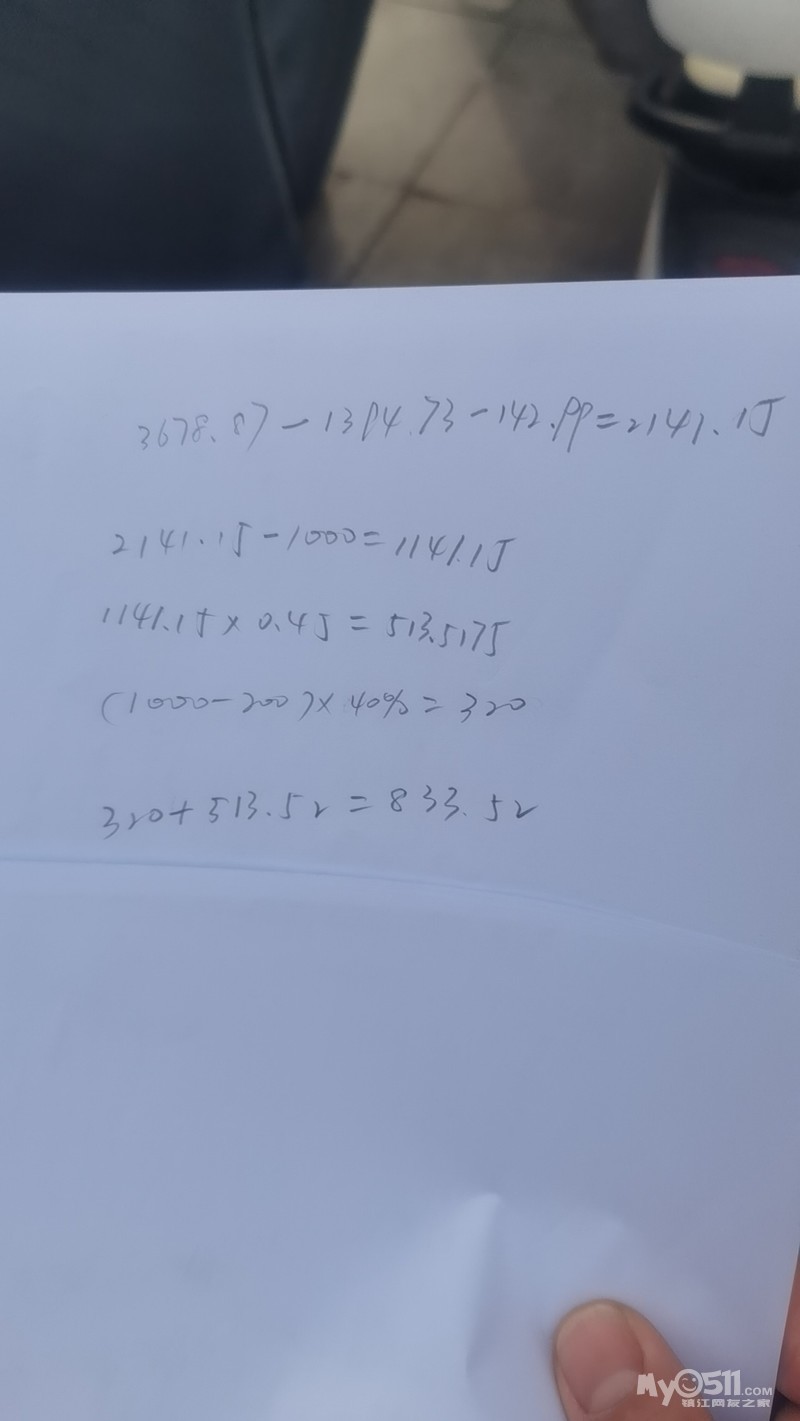 3678.87-1394.73-142.99=2141.15
2141.15-1000=1141.15
1141.15×0.45=513.5175
(1000-200)×40%=320
320+513.52=833.52
My0511.COM
镇江网友之家